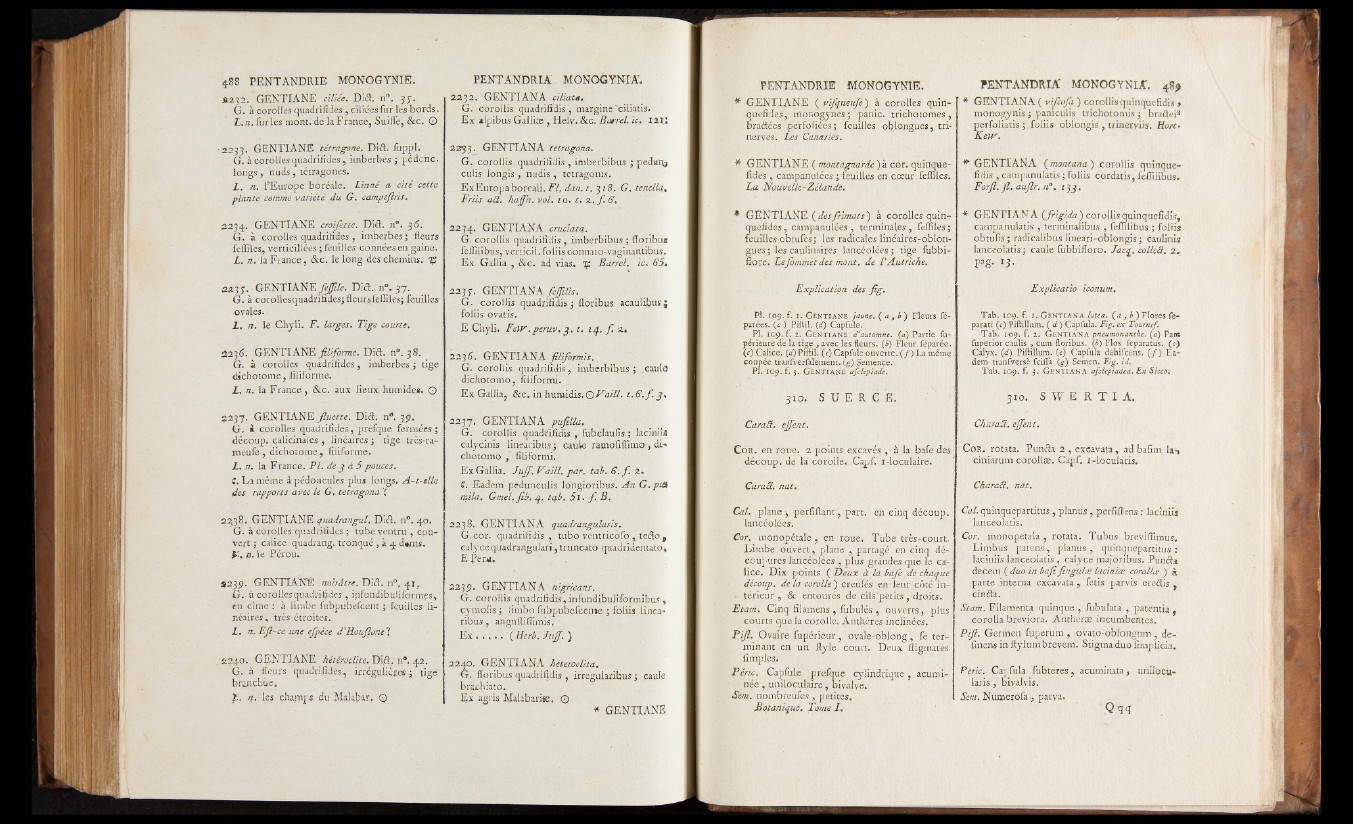 488 PENTANDRIE MONOGYNIE.
2232. GENTIANE ciliée. Dict. n°. 35.
G. à corolles quadrifides, ciliées sur les bords.
L. n. sur les mont. de la France, Suisse, &c. ☉
2233. GENTIANE tétragone. Dict. suppl.
G. à corolles quadrifides, imberbes ; pédonc.
longs, nuds, tétragones.
L. n. l'Europe boréale. Linné a cité cette
plante comme variété du G. campestris.
2234. GENTIANE croisette. Dict. n°. 36.
G. à corolles quadrifides, imberbes ; fleurs
sessiles, verticillées ; feuilles connées en gaine.
L. n. la France, &c. le long des chemins. ♃
2235. GENTIANE sessile. Dict. n°. 37.
G. à corolles quadrifides; fleurs sessiles; feuilles
ovales.
L. n. le Chyli. F. larges. Tige courte.
2236. GENTIANE filiforme. Dict. n°. 38.
G. à corolles quadrifides, imberbes ; tige
dichotome, filiforme.
L. n. la France, &c. aux lieux humides. ☉
2237. GENTIANE fluette. Dict. n°. 39.
G. à corolles quadrifides, presque fermées ;
découp. calicinales, linéaires ; tige très-ra-
meuse, dichotome, filiforme.
L. n. la France. Pl. de 3 à 5 pouces.
C. La même à pédoncules plus longs. A-t-elle
des rapports avec le G. tetragona ?
2238. GENTIANE quadrangul. Dict. n°. 40.
G. à corolles quadrifides ; tube ventru, cou-
vert ; calice quadrang. tronqué, à 4 dents.
L. n. le Pérou.
2239. GENTIANE noirâtre. Dict. n°. 41.
G. à corolles quadrifides, infundibuliformes,
en cîme : à limbe subpubescent ; feuilles li-
néaires, très-étroites.
L. n. Est-ce une espèce d'Houstone ?
2240. GENTIANE hétéroclite. Dict. n°. 42.
G. à fleurs quadrifides, irrégulières ; tige
branchue.
L. n. les champs du Malabar. ☉
PENTANDRIA MONOGYNIA.
2232. GENTIANA ciliata.
G. corollis quadrifidis, margine ciliatis.
Ex alpibus Galliæ, Helv. &c. Barrel. ic. 121.
2233. GENTIANA tetragona.
G. corollis quadrifidis, imberbibus ; pedun-
culis longis, nudis, tetragonis.
Ex Europa boreali. Fl. dan. t. 318. G. tenella.
Friis act. haffn. vol. 10. t. 2. f. 6.
2234. GENTIANA cruciata.
G. corollis quadrifidis, imberbibus ; floribus
sessilibus, verticil. foliis connato-vaginantibus.
Ex Gallia, &c. ad vias. ♃ Barrel. ic. 65.
2235. GENTIANA sessilis.
G. corollis quadrifidis ; floribus acaulibus ;
foliis ovatis.
E Chyli. Few. peruv. 3. t. 14. f. 2.
2236. GENTIANA filiformis.
G. corollis quadrifidis, imberbibus ; caule
dichotomo, filiformi.
Ex Gallia, &c. in humidis. ☉ Vaill. t. 6. f. 3.
2237. GENTIANA pusilla.
G. corollis quadrifidis, subclausis ; laciniis
calycinis linearibus ; caule ramosissimo, di-
chotomo, filiformi.
Ex Gallia. Juss. Vaill. par. tab. 6. f. 2.
C. Eadem pedunculis longioribus. An G. pu-
mila. Gmel. sib. 4. tab. 51. f. B.
2238. GENTIANA quadrangularis.
G. cor. quadrifidis, tubo ventricoso, tecto,
calyce quadrangulari, truncato quadridentato.
E Peru.
2239. GENTIANA nigricans.
G. corollis quadrifidis, infundibuliformibus,
cymosis ; limbo subpubescente ; foliis linea-
ribus, angustissimis.
Ex..... (Herb. Juss.)
2240. GENTIANA heteroclita.
G. floribus quadrifidis, irregularibus ; caule
brachiato.
Ex agris Malabariæ. ☉
* GENTIANE
PENTANDRIE MONOGYNIE.
* GENTIANE ( visqueuse ) à corolles quin-
quefides, monogynes ; panic. trichotomes,
bractées perfoliées ; feuilles oblongues, tri-
nerves. Les Canaries.
* GENTIANE ( montagnarde ) à cor. quinque-
fides, campanulées ; feuilles en cœur sessiles.
La Nouvelle-Zélande.
* GENTIANE ( des frimats ) à corolles quin-
quefides, campanulées, terminales, sessiles;
feuilles obtuses; les radicales linéaires-oblon-
gues ; les caulinaires lancéolées ; tige subbi-
flore. Le sommet des mont. de l'Autriche.
Explication des fig.
Pl. 109. f. 1. GENTIANE jaune. ( a, b ) Fleurs sé-
parées. (c) Pistil. (d) Capsule.
Pl. 109. f. 2. GENTIANE d'automne. (a) Partie su-
périeure de la tige, avec les fleurs. (b) Fleur séparée.
(c) Calice. (d) Pistil. (e) Capsule ouverte. (f) La même
coupée transversalement. (g) Semence.
Pl. 109. f. 3. GENTIANE asclepiade.
310. SUERCE.
Caract. essent.
COR. en roue. 2 points excavés, à la base des
découp. de la corolle. Caps. 1-loculaire.
Caract. nat.
Cal. plane, persistant, part. en cinq découp.
lancéolées.
Cor. monopétale, en roue. Tube très-court.
Limbe ouvert, plane, partagé en cinq dé-
coupures lancéolées, plus grandes que le ca-
lice. Dix points ( Deux à la base de chaque
découp. de la corolle ) creusés en leur côté in-
térieur, & entourés de cils petits, droits.
Etam. Cinq filamens, subulés, ouverts, plus
courts que la corolle. Anthères inclinées.
Pist. Ovaire supérieur, ovale-oblong, se ter-
minant en un style court. Deux stigmates
simples.
Péric. Capsule presque cylindrique, acumi-
née, uniloculaire, bivalve.
Sem. nombreuses, petites.
Botanique. Tome I.
PENTANDRIA MONOGYNIA. 489
* GENTIANA ( viscosa ) corollis quinquefidis,
monogynis ; paniculis trichotomis ; bracteis
perfoliatis ; foliis oblongis, trinerviis. Hort.
Kew.
* GENTIANA ( montana ) corollis quinque-
fidis, campanulatis ; foliis cordatis, sessilibus.
Forst. fl. austr. n°. 133.
* GENTIANA (frigida) corollis quinquefidis,
campanulatis, terminalibus, sessilibus ; foliis
obtusis ; radicalibus lineari-oblongis ; caulinis
lanceolatis ; caule subbifloro. Jacq. collect. 2.
pag. 13.
Explicatio iconum.
Tab. 109. f. 1. GENTIANA lutea. (a, b) Flores se-
parati (c) Pistillum. (d) Capsula. Fig. ex Tournef.
Tab. 109. f. 2. GENTIANA pneumonanthe. (a) Pars
superior caulis, cum floribus. (b) Flos separatus. (c)
Calyx. (d) Pistillum. (e) Capsula dehiscens. (f) Ea-
dem transversè scissa (g) Semen. Fig. id.
Tab. 109. f. 3. GENTIANA asclepiadea. Ex Sicco.
310. SWERTIA.
Charact. essent.
COR. rotata. Puncta 2, excavata, ad basim la-
ciniarum corollæ. Caps. 1-locularis.
Charact. nat.
Cal. quinquepartitus, planus, persistens : laciniis
lanceolatis.
Cor. monopetala, rotata. Tubus brevissimus.
Limbus patens, planus, quinquepartitus :
laciniis lanceolatis, calyce majoribus. Puncta
decem ( duo in basi singulæ laciniæ corollæ ) à
parte interna excavata, setis parvis erectis,
cincta.
Stam. Filamenta quinque, subulata, patentia,
corolla breviora. Antheræ incumbentes.
Pist. Germen superum, ovato-oblongum, de-
sinens in stylum brevem. Stigma duo simplicia.
Peric. Capsula subteres, acuminata, unilocu-
laris, bivalvis.
Sem. Numerosa, parva.
Qqq